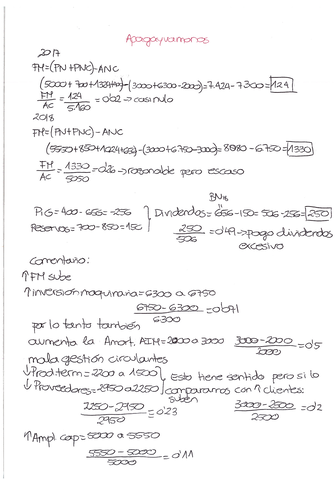 Apagayvamonos
2017
FM=(PN+PNC)-ANC
(5000+700+1324+400)-(3000+6300-2000)=7.424-7300=124
FM/AC = 124/5160 =0'02→casi nulo
2018
FM=(PN+PNC)-ANC
(5550+850+1024+656)-(3000+6750-3000)=8080-6750=1330
FM/AC = 1330/5050 =0'26→razonable pero escaso
PyG=400-656=-256
Reservas=700-850=150
BN18
Dividendos=656-150=506-256=250
250/506 =0'49→pago dividendos excesivo
Comentario:
↑FM sube
↑inversión maquinaria=6300 a 6750
6750-6300/6300 =0'071
por lo tanto también
aumenta la Amort. AIM=2000 a 3000 3000-2000/2000 =0'5
mala gestión circulantes
↓Prod.term=2200 a 1500
↓Proveedores=2950 a 2250
Esto tiene sentido pero si lo comparamos con ↑ clientes:
suben
2250-2950/2950 =0'23
3000-2500/2500 =0'2
↑Ampl cap=5000 a 5550
5550-5000/5000 =0'11